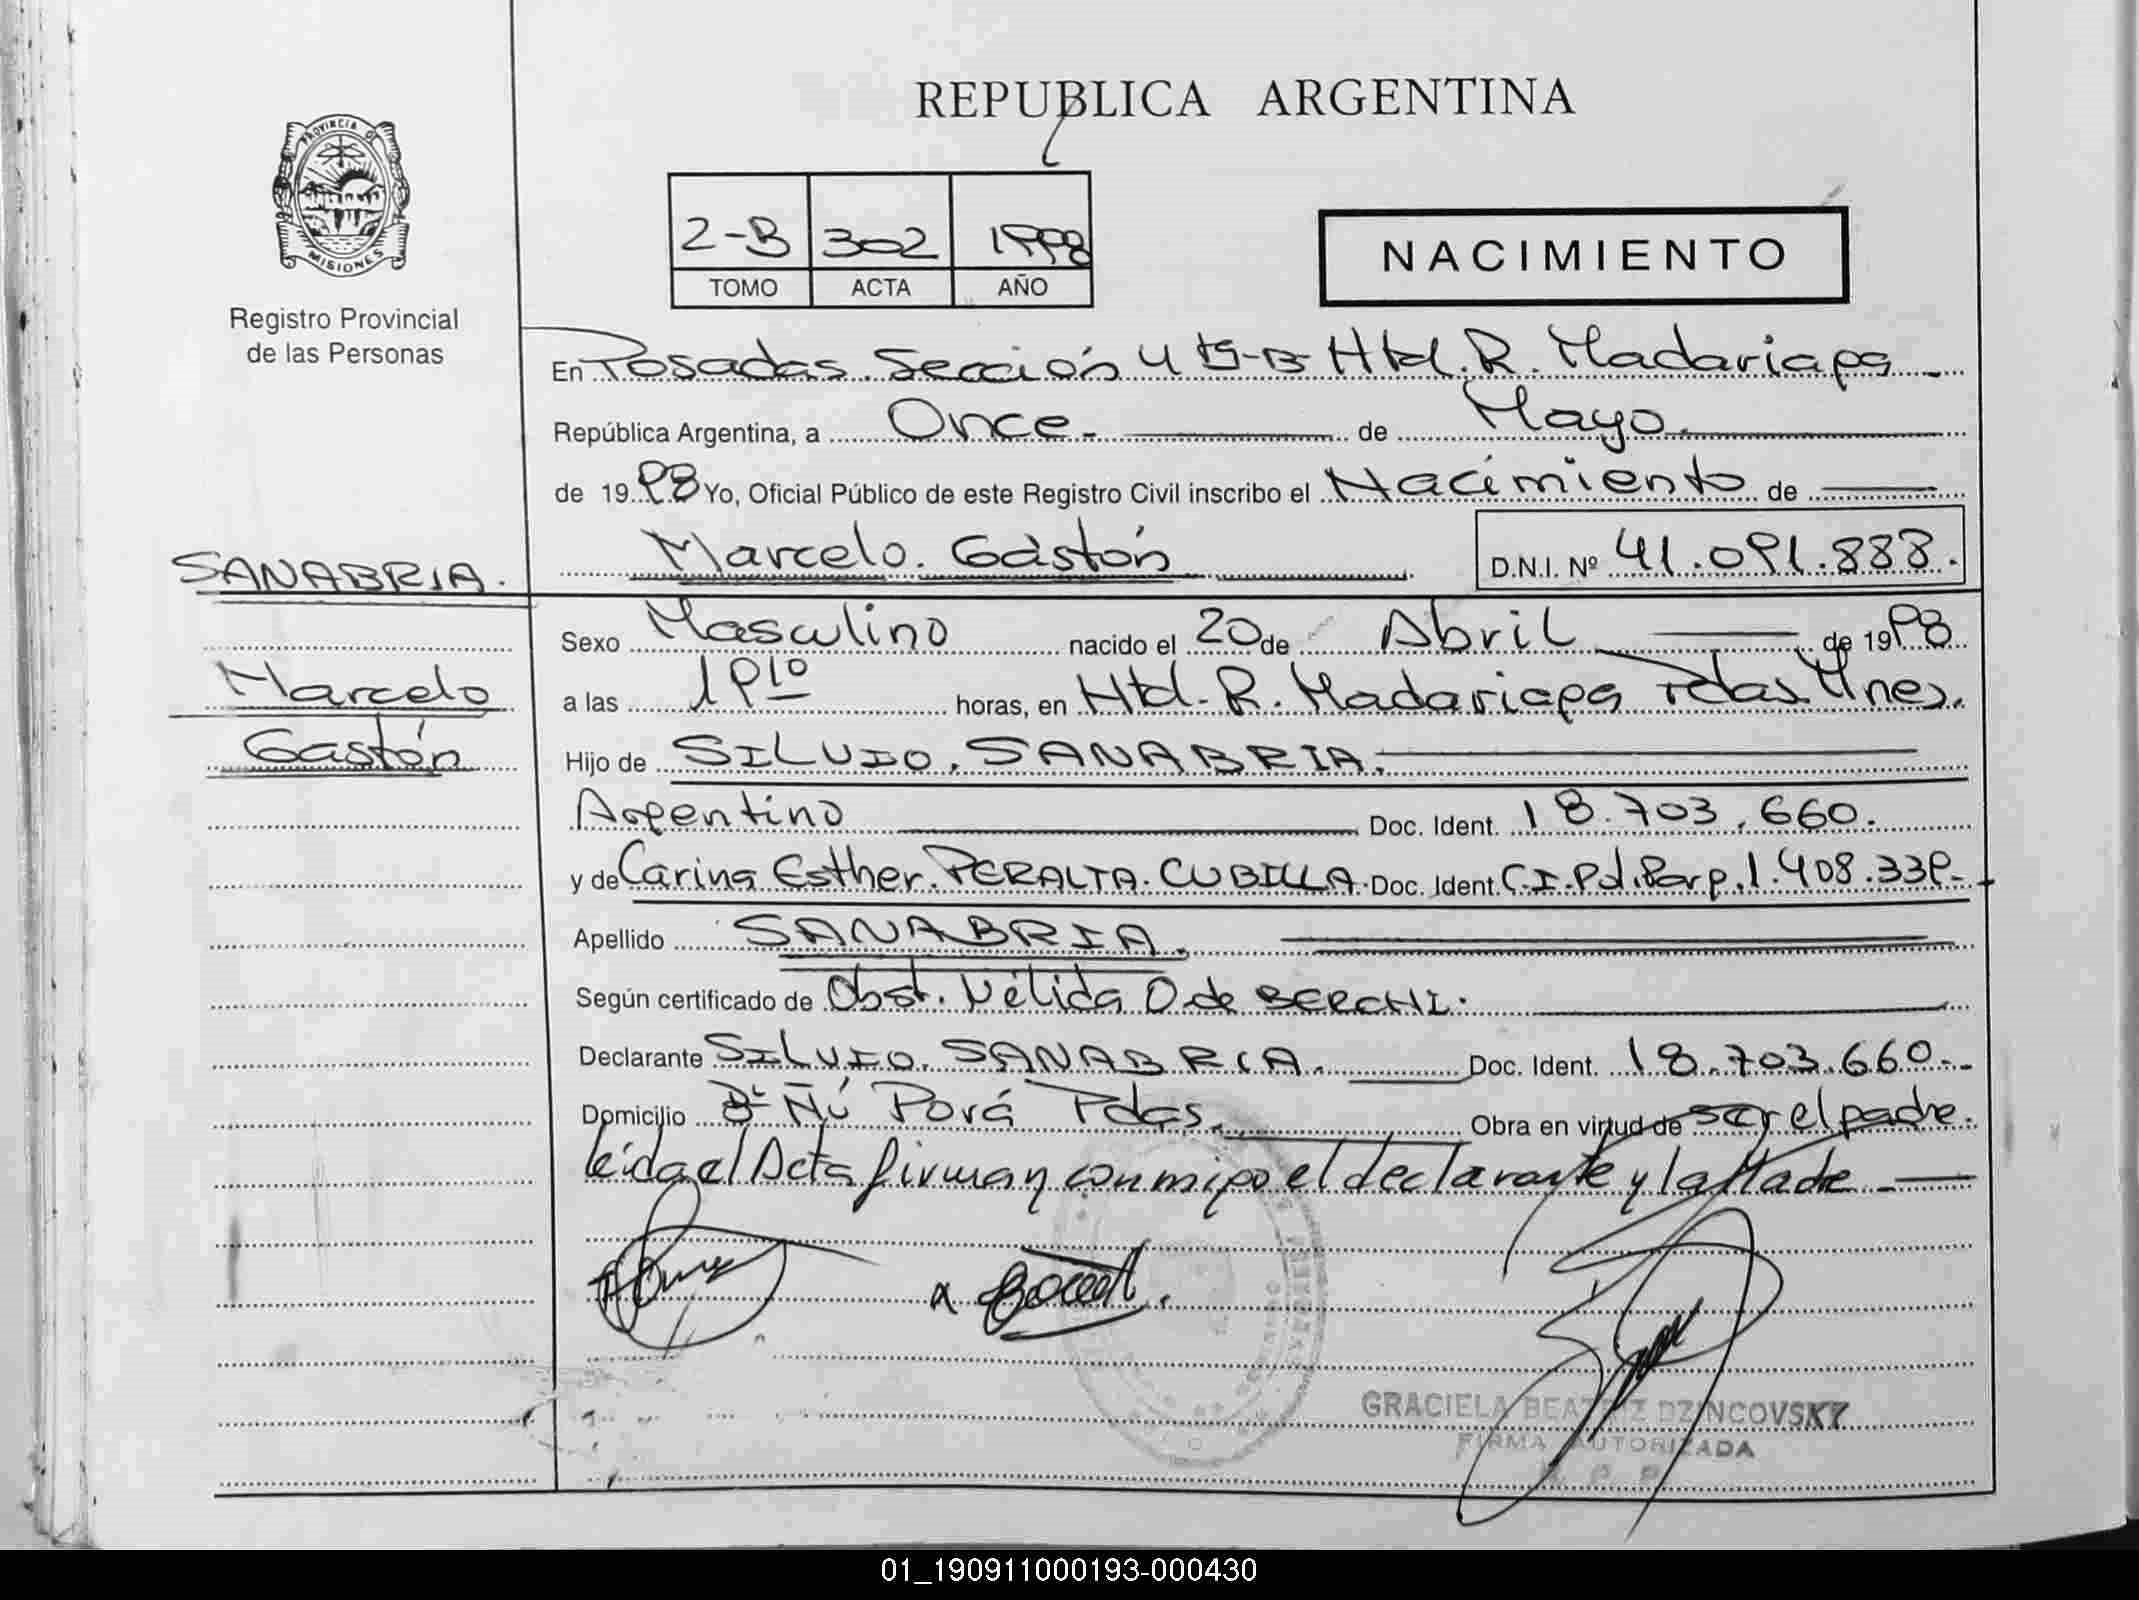 REPUBLICA ARGENTINA
PROVINCIA DE
MISIONES
Registro Provincial
de las Personas
2-B 302 1998
TOMO ACTA AÑO
NACIMIENTO
En Posadas. Sección 4 tª-B- Htal. R. Madariaga
República Argentina, a Once. de Mayo.
de 1998 Yo, Oficial Público de este Registro Civil inscribo el Nacimiento de
SANABRIA.
Marcelo. Gastón
D.N.I. Nº 41.091.888.
Marcelo
Gastón
Sexo Masculino nacido el 20 de Abril de 1998
a las 19 10 horas, en Htal. R. Madariaga Pdas Mnes.
Hijo de SILVIO. SANABRIA.
Argentino Doc. Ident. 18.703.660.
y de Carina Esther. PERALTA. CUBILLA. Doc. Ident. C.I. Pol. Parg. 1.408.339-
Apellido SANABRIA.
Según certificado de Obst. Nélida O. de BERCHI.
Declarante SILVIO. SANABRIA. Doc. Ident. 18.703.660.-
Domicilio Bº Ñú Porá Pdas. Obra en virtud de ser el padre.
leída el Acta firman conmigo el declarante y la Madre
GRACIELA BEATRIZ DZINCOVSKY
FIRMA AUTORIZADA
R. P. P.
01_190911000193-000430